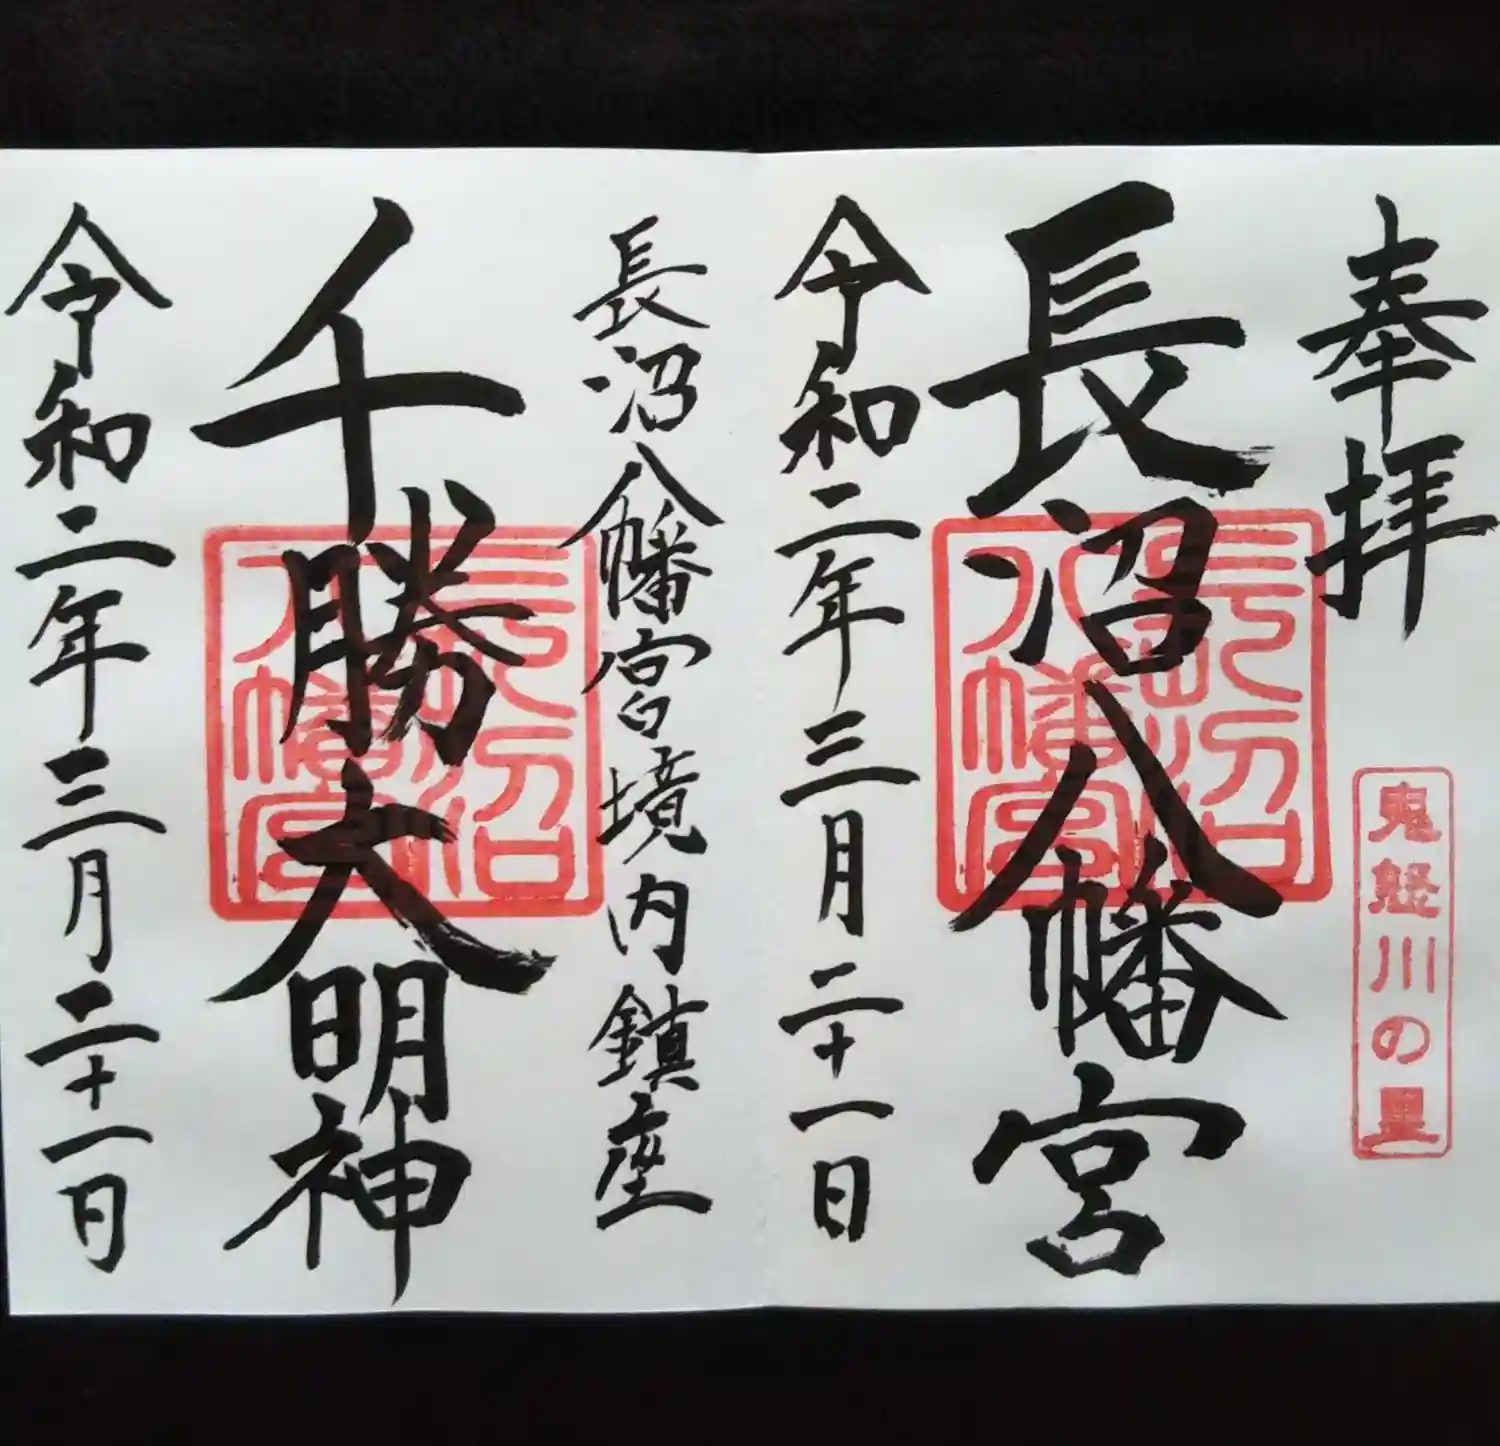 奉拝
鬼怒川の里
長沼八幡宮
長沼八幡宮
令和二年三月二十一日
長沼八幡宮境内鎮座
千勝大明神
長沼八幡宮
令和二年三月二十一日